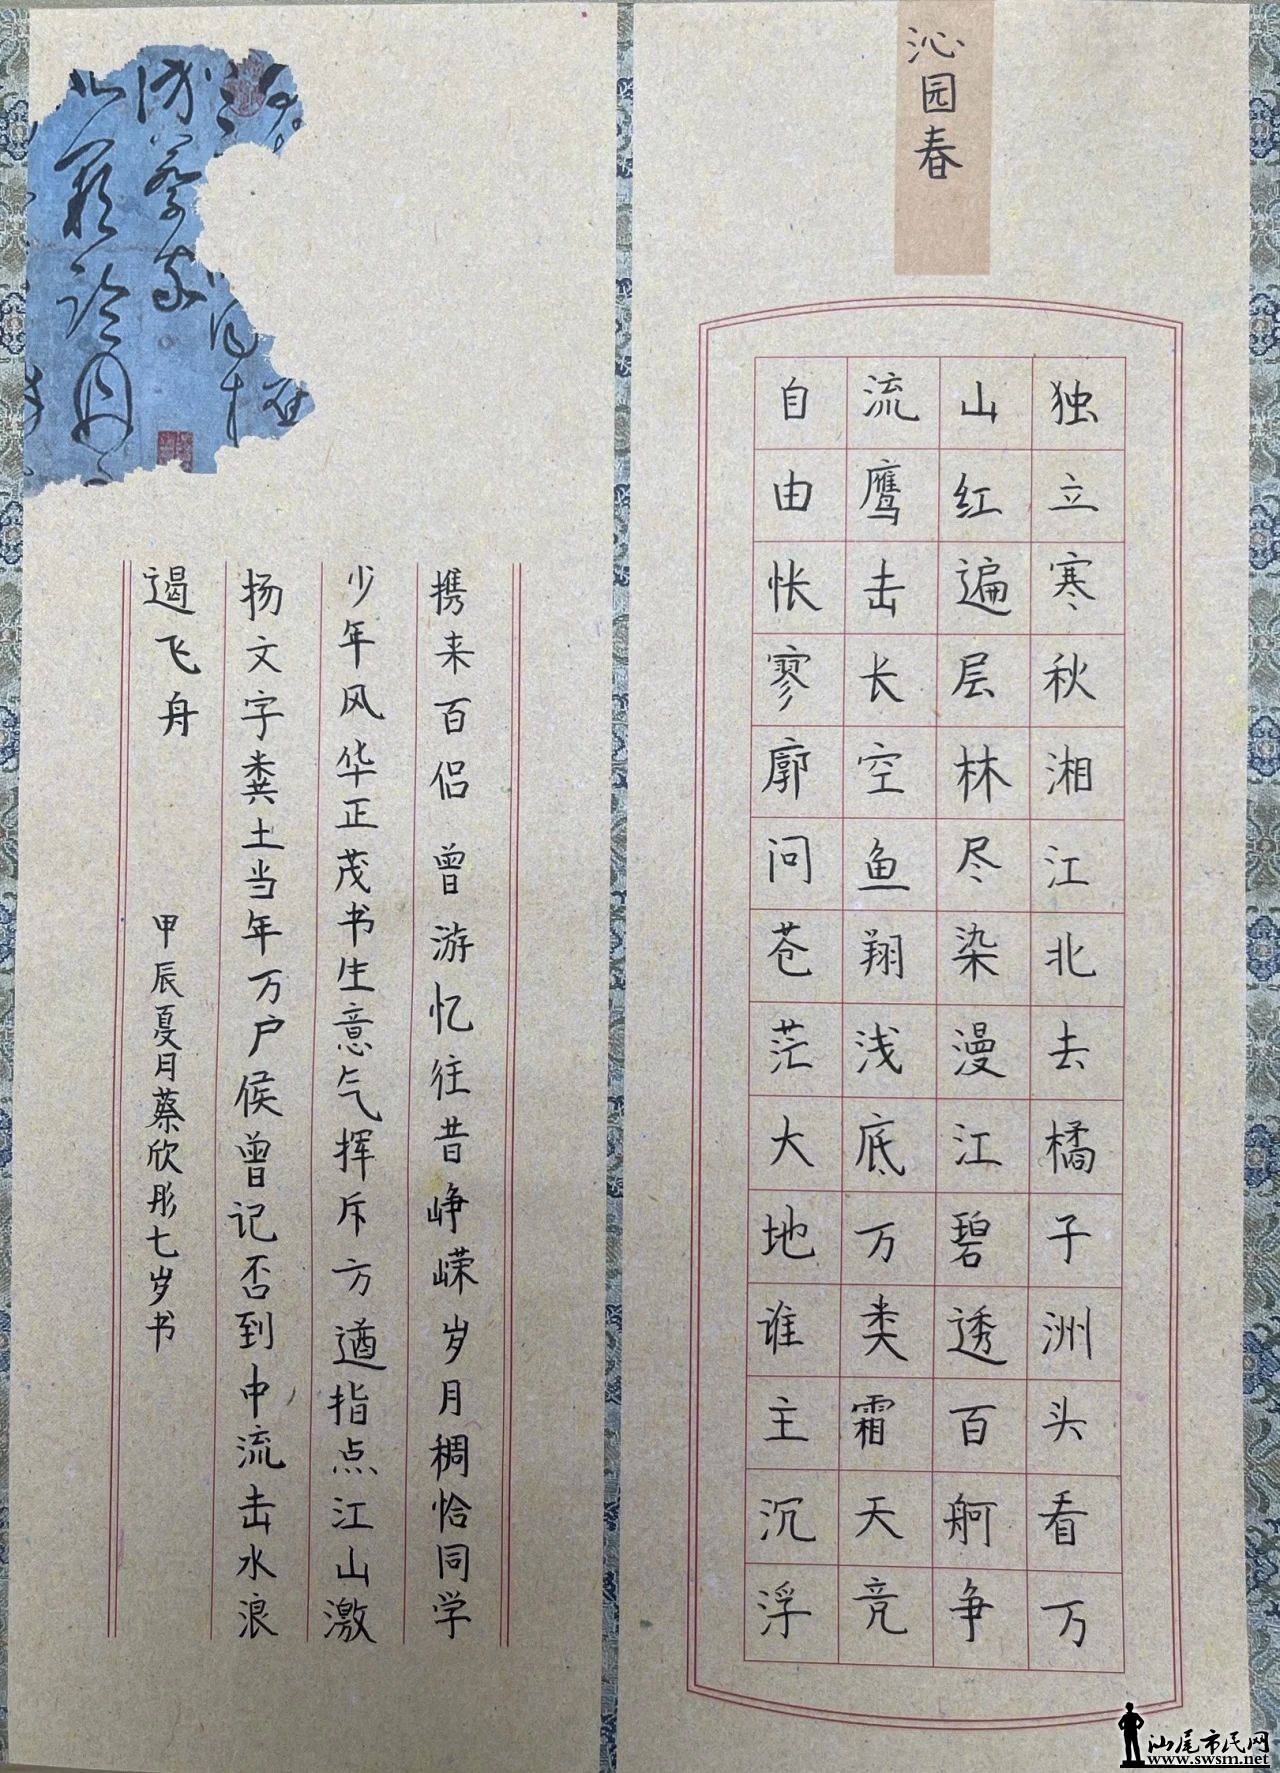 沁园春
独立寒秋湘江北去橘子洲头看万
山红遍层林尽染漫江碧透百舸争
流鹰击长空鱼翔浅底万类霜天竞
自由怅寥廓问苍茫大地谁主沉浮
携来百侣曾游忆往昔峥嵘岁月稠恰同学
少年风华正茂书生意气挥斥方遒指点江山激
扬文字粪土当年万户侯曾记否到中流击水浪
遏飞舟
甲辰夏月蔡欣彤七岁书
汕尾市民网
www.swsm.net